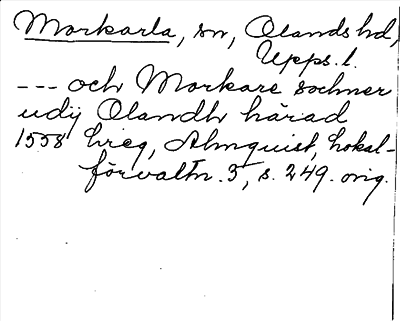 Morkarla, sn, Olands hd,
Upps. l.
--- och Morkare sochner
udij Olandh härad
1558 hreg, Almquist, Lokal-
förvaltn. 3, s. 249. orig.